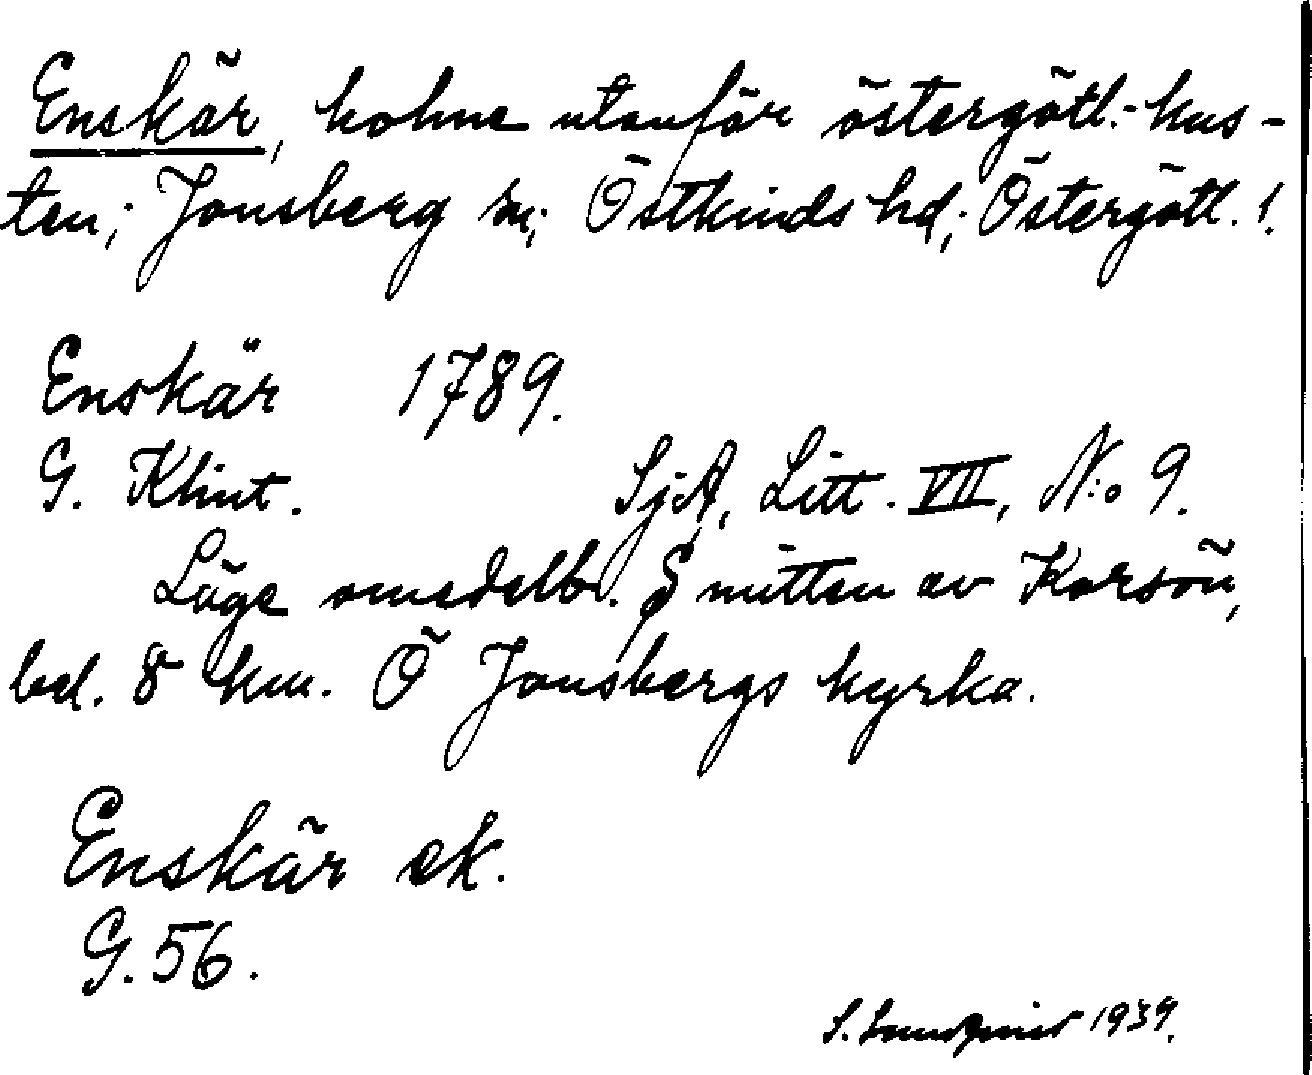 Enskär, holme utanför östergötl.-kus-
ten; Jonsberg sn; Östkinds hd; Östergötl. l.
Enskär 1789.
G. Klint. SjA, Litt. VII, N:o 9.
Läge omedelb. S mitten av Korsön,
bel. 8 km. Ö Jonsbergs kyrka.
Enskär ek.
G. 56.
S. 1939.